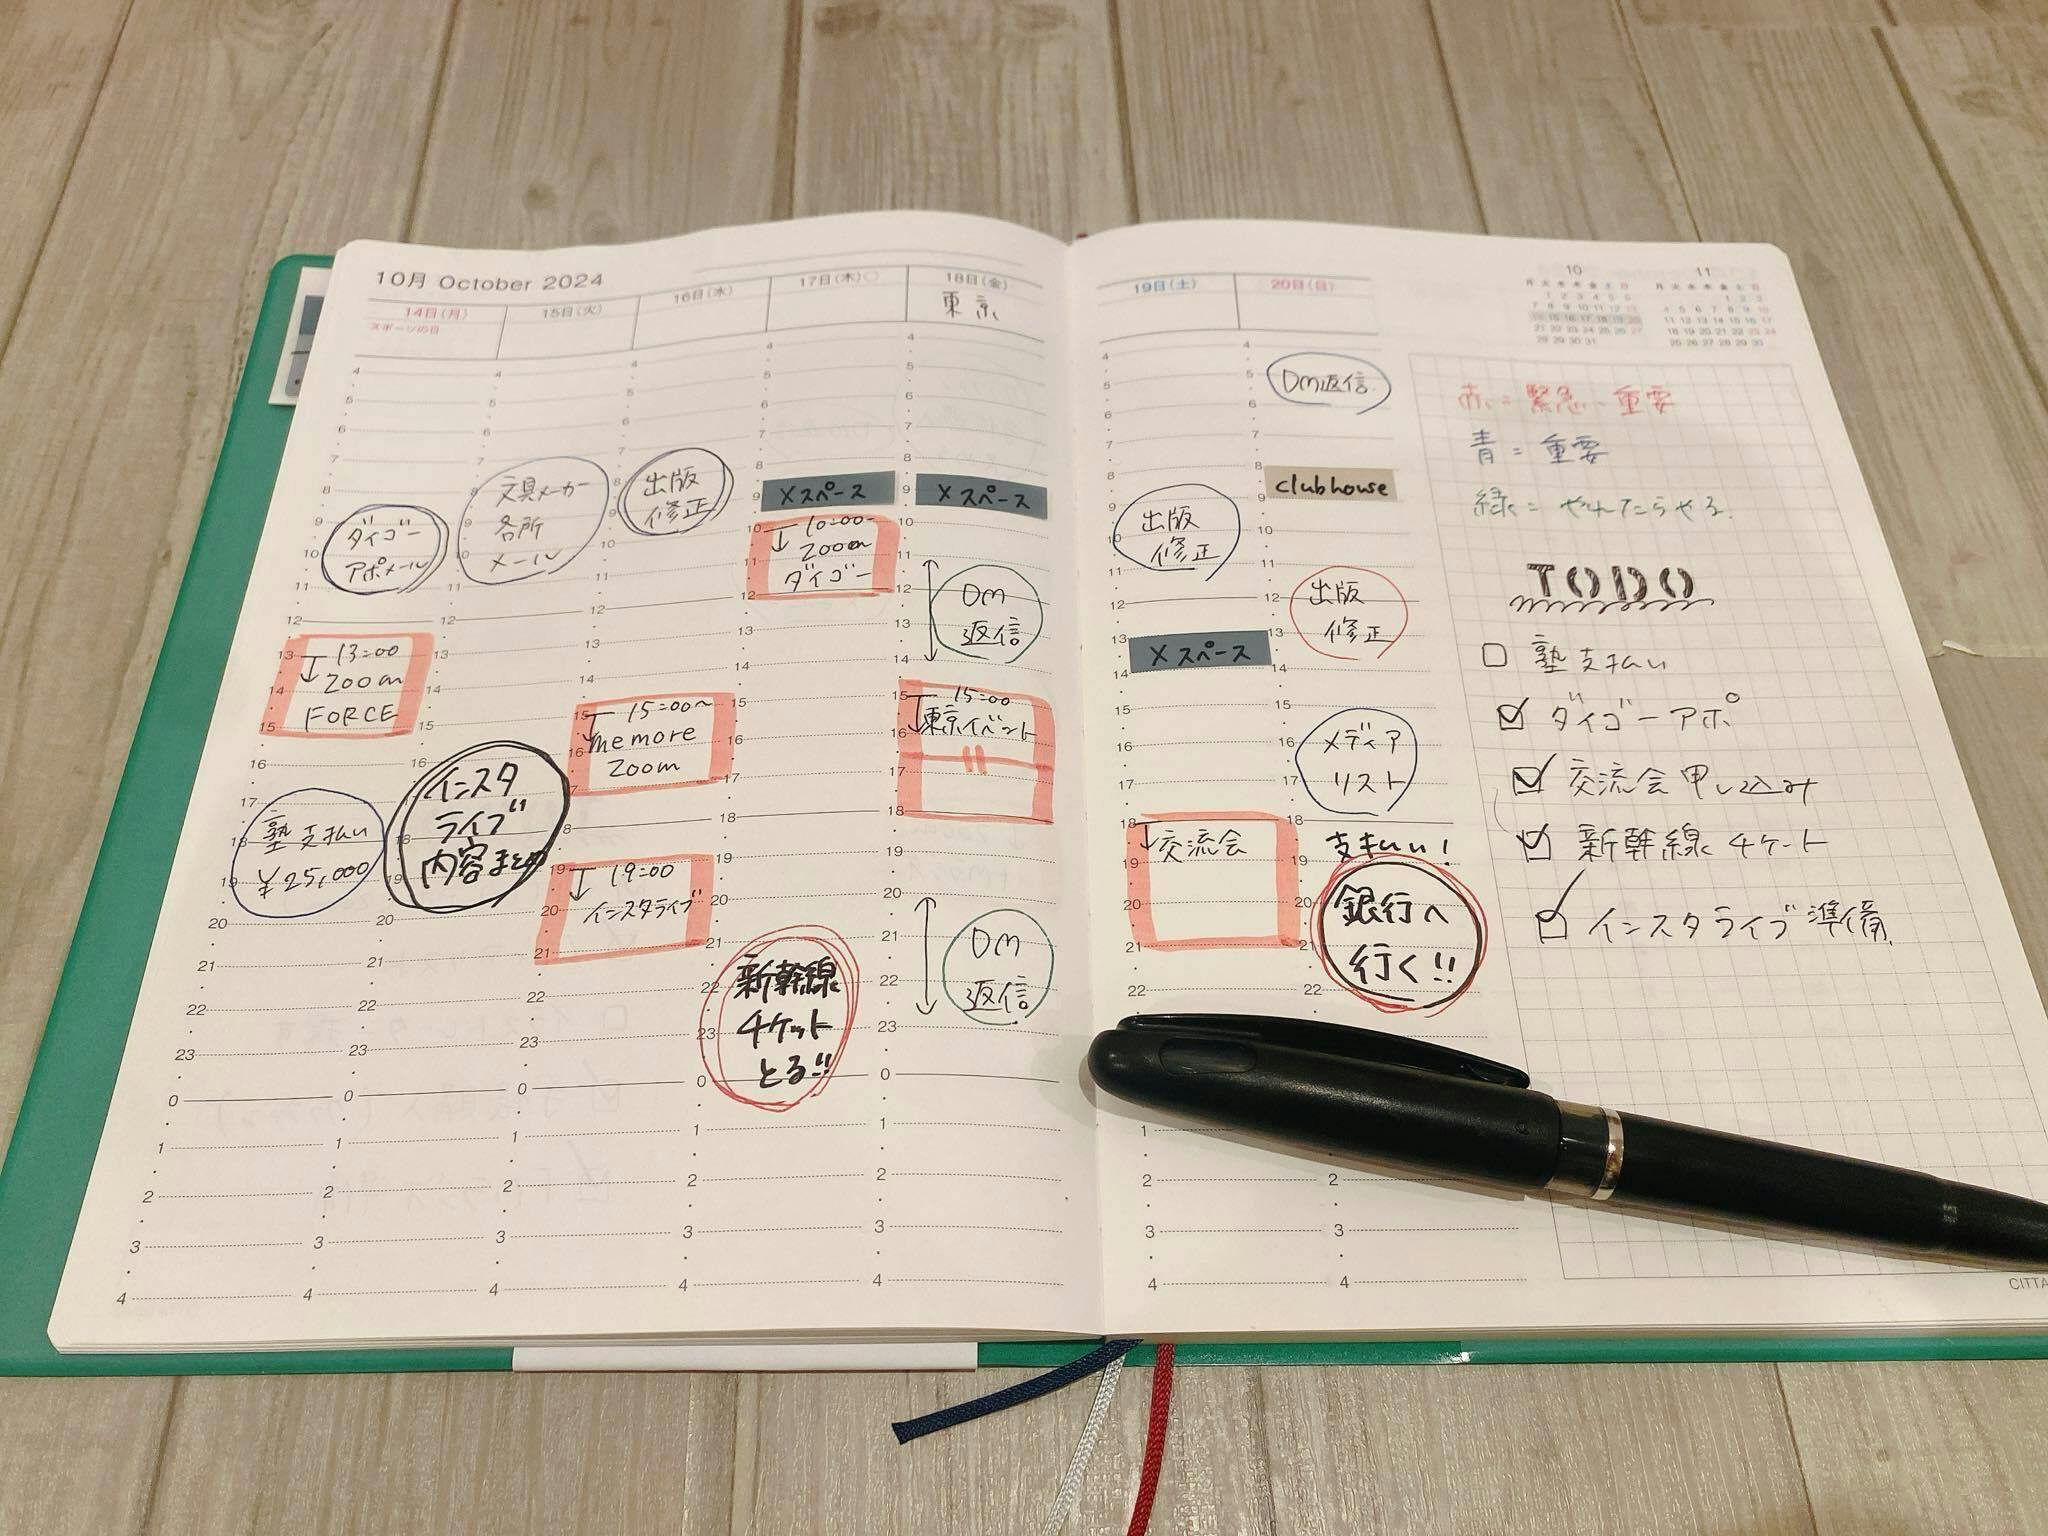 10月 October 2024
14日(月)
スポーツの日
15日(火)
16日(水)
17日(木)
18日(金)
東京
19日(土)
20日(日)
10
11
ダイゴー
アポメール
13:00
zoom
FORCE
塾支払い
¥25,000
文具メーカー
各所
メール
インスタ
ライブ
内容まとめ
出版
修正
15:00〜
memore
zoom
19:00
インスタライブ
Xスペース
10:00〜
zoom
ダイゴー
新幹線
チケット
とる!!
Xスペース
DM
返信
15:00
東京イベント
DM
返信
出版
修正
Xスペース
交流会
DM返信
clubhouse
出版
修正
メディア
リスト
支払い!
銀行へ
行く!!
赤=緊急・重要
青=重要
緑=やれたらやる
TODO
塾支払い
ダイゴーアポ
交流会申し込み
新幹線チケット
インスタライブ準備
CITTA